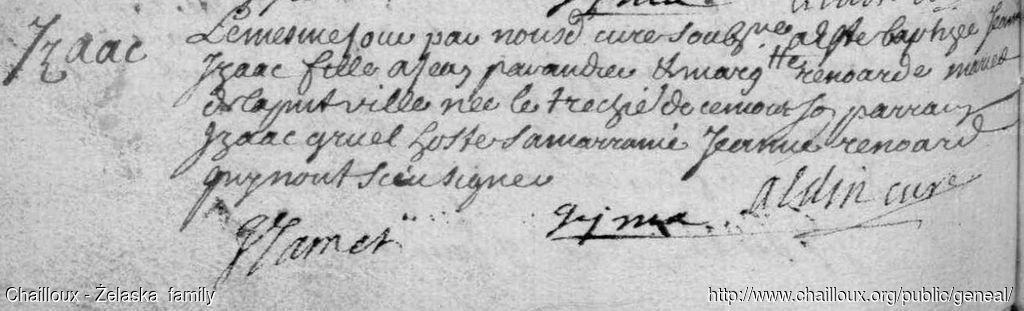 Izaac
Le mesme jour par nousd cure soubzne a este baptizee Jeanne
Izaac fille a Jean pavandre & marg tte renoarde mariee
de la pnt ville nee le trezie de ce mois so parrain
Izaac gruel hoste sa marraine Jeanne renoard
qui nont sceu signer
aldin cure
Chailloux - Żelaska family
http://www.chailloux.org/public/geneal/